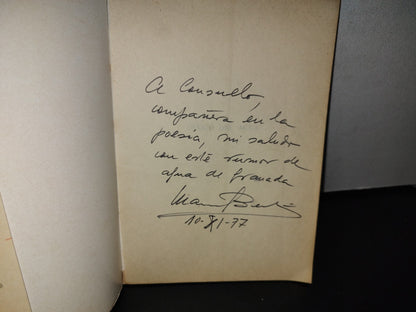 A Consuelo,
compañera en la
poesía, mi saludo
con este rumor de
agua de Granada
10-XI-77